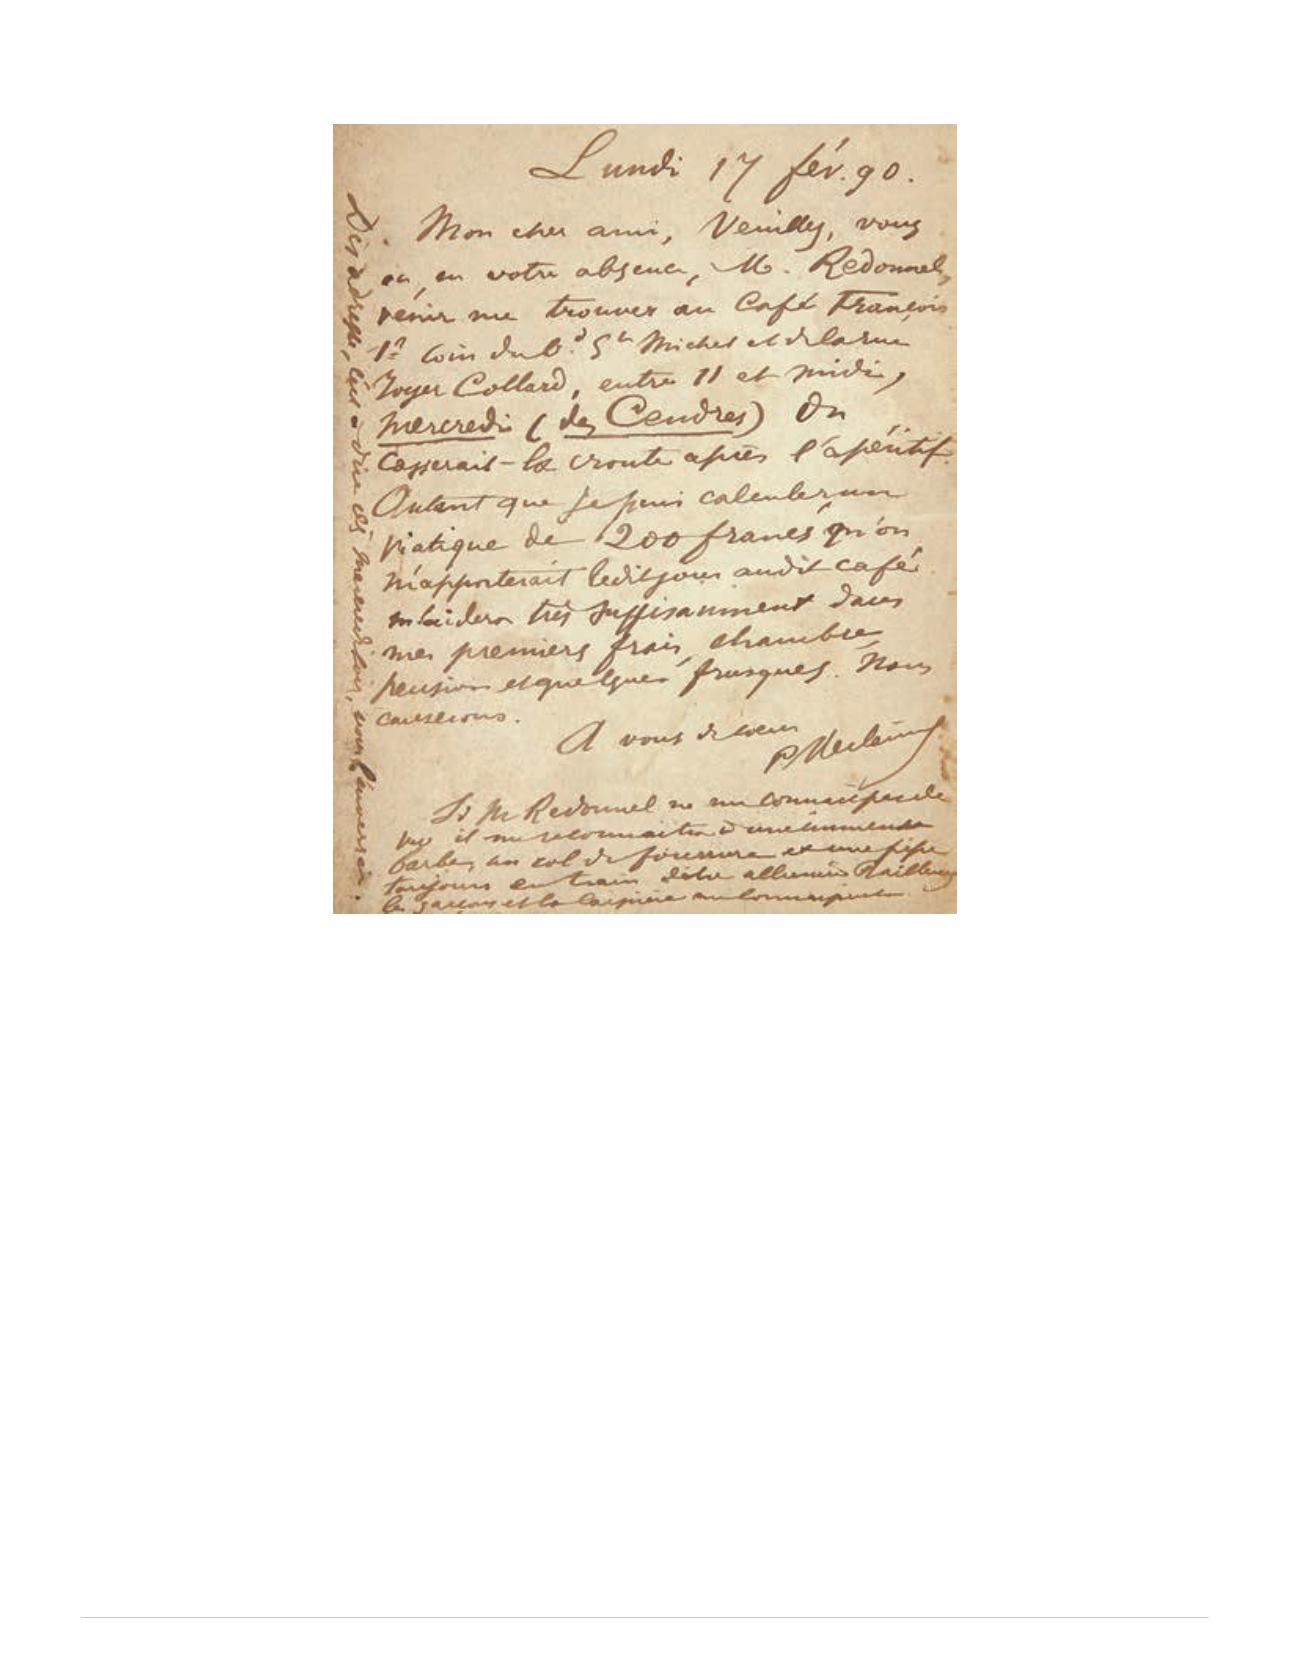 Lundi 17 fév. 90.
Mon cher ami, Veuillez, vous
ou, en votre absence, M. Redonnel,
venir me trouver au Café François
1er coin du bd St Michel et de la rue
Royer Collard, entre 11 et midi,
mercredi (des Cendres) On
casserait-la croute après l'apéritif.
Autant que je puis calculer un
viatique de 200 francs qu'on
m'apporterait ledit jour audit café
m'aidera très suffisamment dans
mes premiers frais, chambre,
pension et quelques frusques. Nous
causerons.
A vous de coeur
P. Verlaine
Si M Redonnel ne me connait pas de
vue il me reconnaitra à une immense
barbe, un col de fourrure et une pipe
toujours en train d'être allumée D'ailleurs
le garçon et la caissière me connaissent.
Dès adresse, c'est à dire dès mercredi soir, vous l'enverrai.